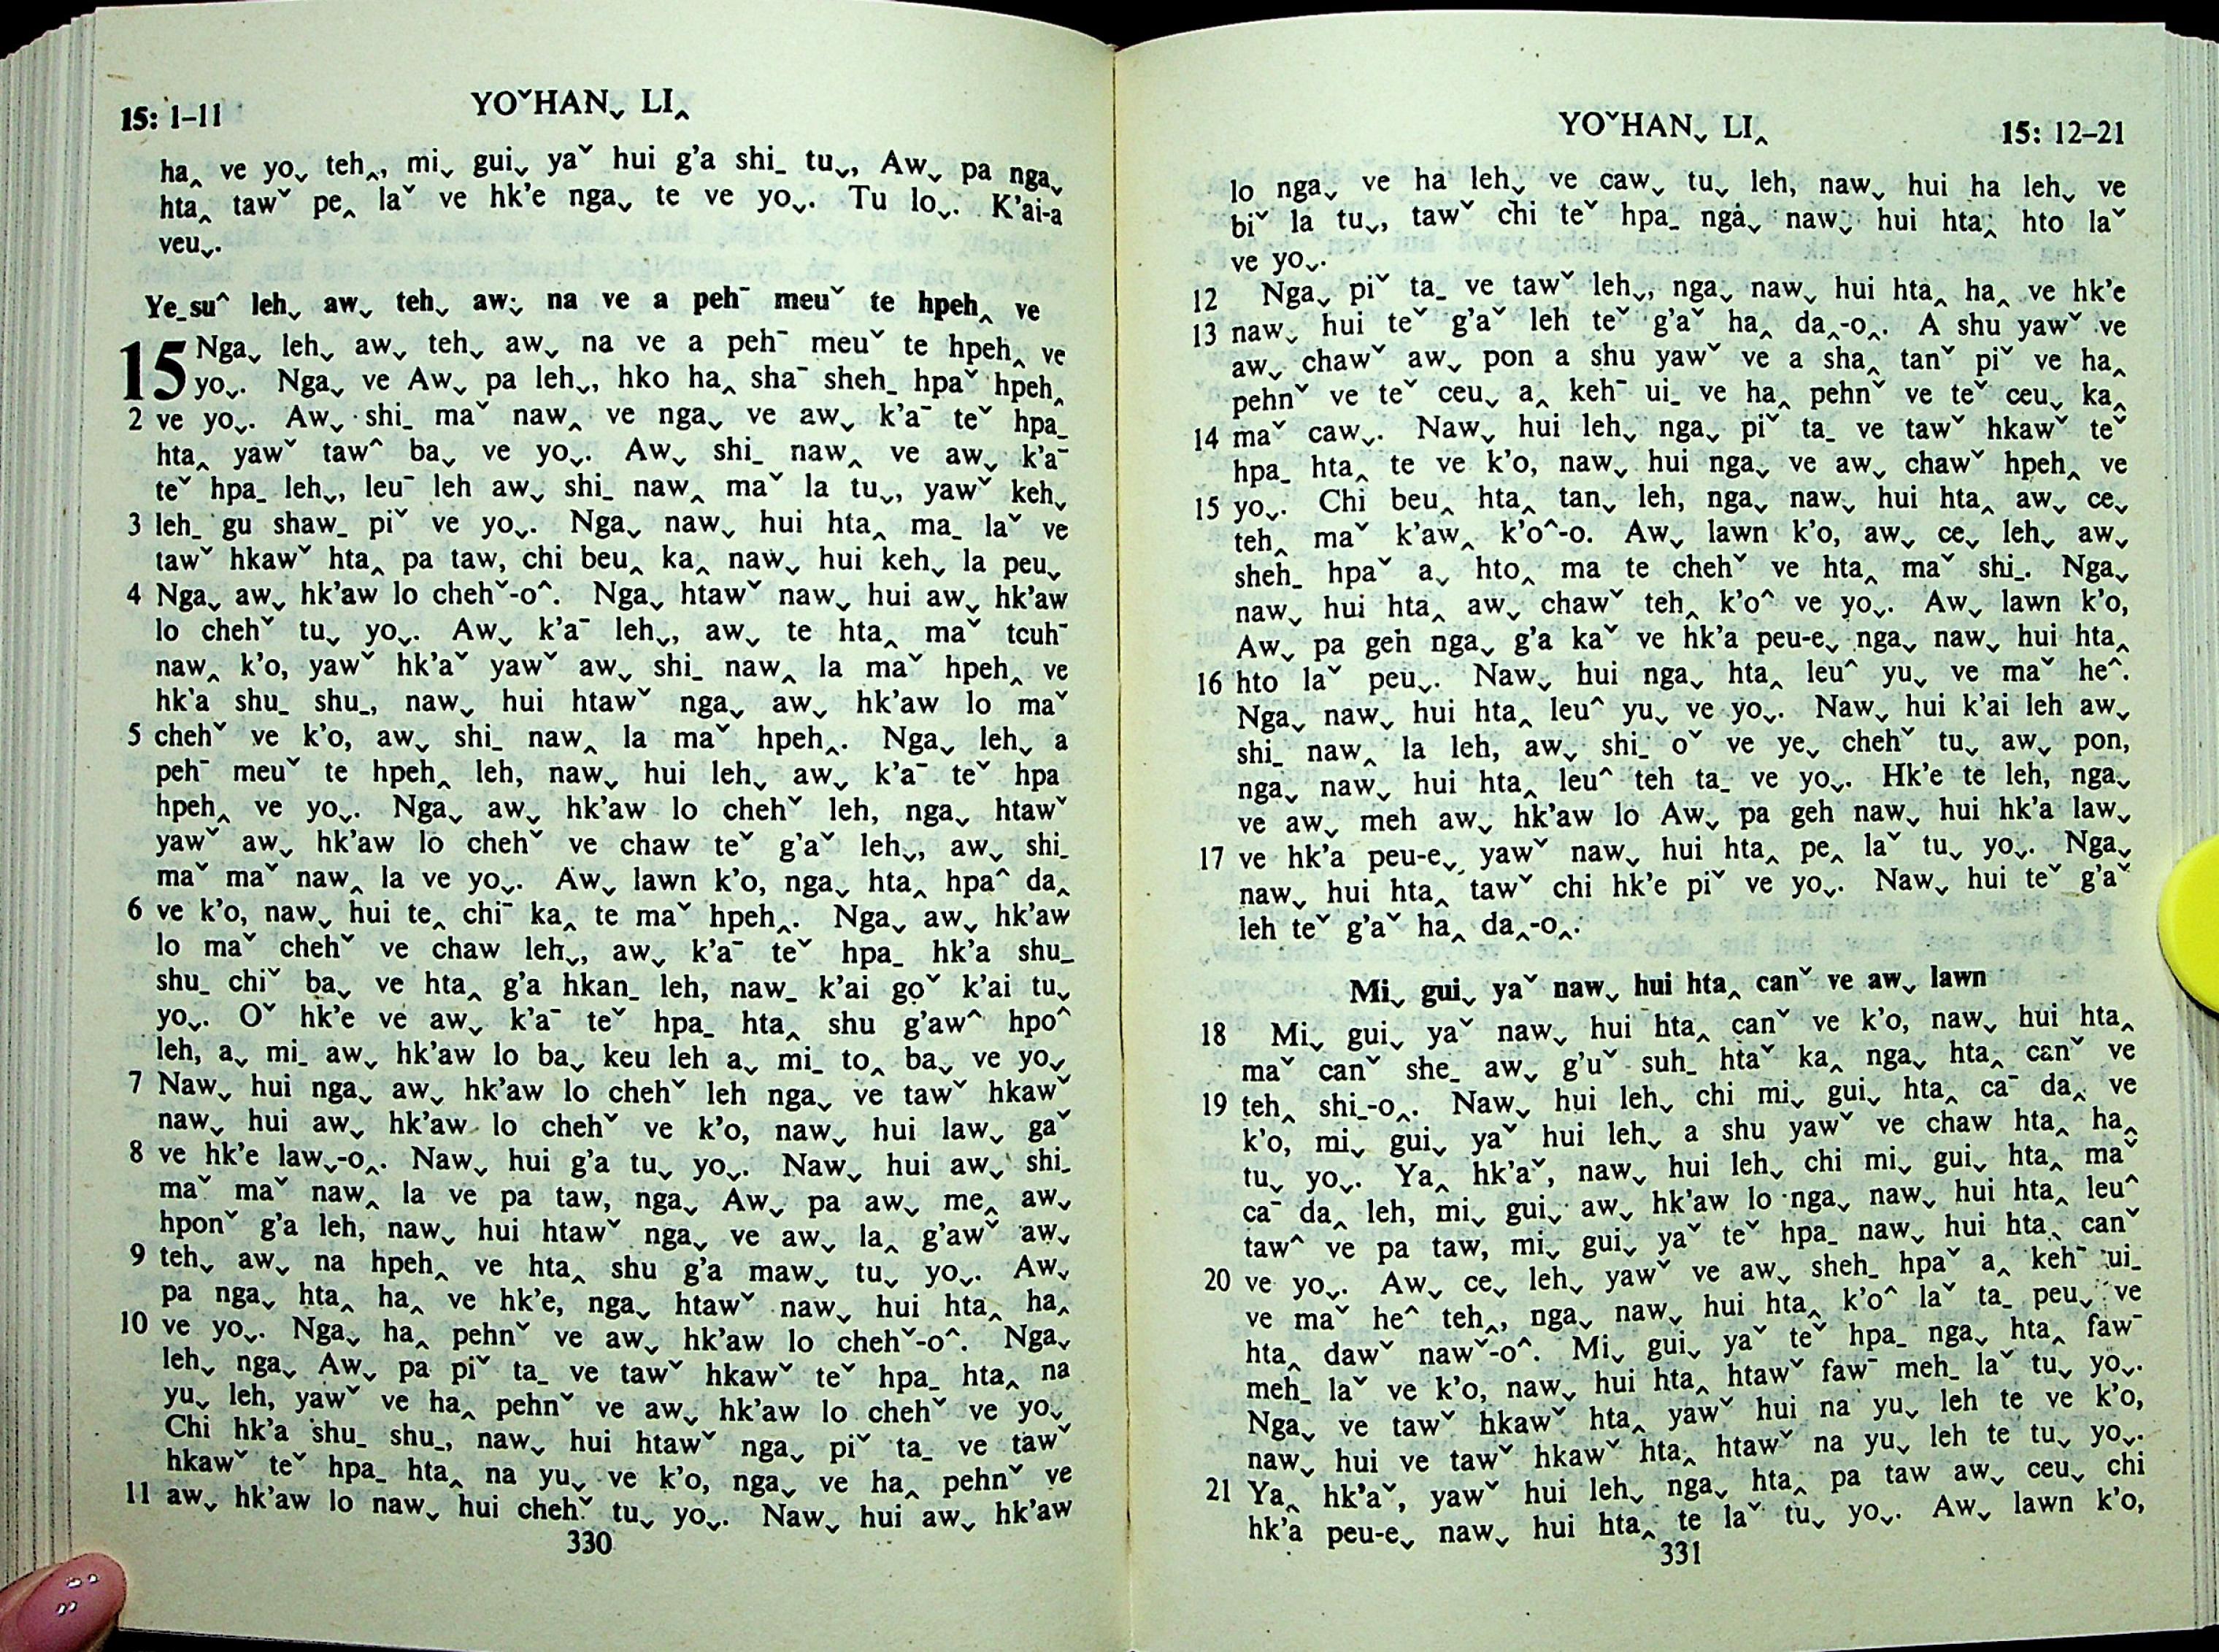 15: 1–11
YOˇHANˬ LI‸
ha‸ ve yoˬ teh‸, miˬ guiˬ yaˇ hui g’a shi_ tuˬ, Awˬ pa ngaˬ
hta‸ tawˇ pe‸ laˇ ve hk’e ngaˬ te ve yoˬ. Tu loˬ. K’ai-a
veuˬ.
Ye_suˆ lehˬ awˬ tehˬ awˬ na ve a pehˉ meuˇ te hpeh‸ ve
15 Ngaˬ lehˬ awˬ tehˬ awˬ na ve a pehˉ meuˇ te hpeh‸ ve
yoˬ. Ngaˬ ve Awˬ pa lehˬ, hko ha‸ shaˉ sheh_ hpaˇ hpeh‸
2 ve yoˬ. Awˬ shi_ maˇ naw‸ ve ngaˬ ve awˬ k’aˉ teˇ hpa_
hta‸ yawˇ tawˆ baˬ ve yoˬ. Awˬ shi_ naw‸ ve awˬ k’aˉ
teˇ hpa_ lehˬ, leuˉ leh awˬ shi_ naw‸ maˇ la tuˬ, yawˇ kehˬ
3 leh_ gu shaw_ piˇ ve yoˬ. Ngaˬ nawˬ hui hta‸ ma_ laˇ ve
tawˇ hkawˇ hta‸ pa taw, chi beu‸ ka‸ nawˬ hui kehˬ la peuˬ
4 Ngaˬ awˬ hk’aw lo chehˇ-oˆ. Ngaˬ htawˇ nawˬ hui awˬ hk’aw
lo chehˇ tuˬ yoˬ. Awˬ k’aˉ lehˬ, awˬ te hta‸ maˇ tcuhˉ
naw‸ k’o, yawˇ hk’aˇ yawˇ awˬ shi_ naw‸ la maˇ hpeh‸ ve
hk’a shu_ shu_, nawˬ hui htawˇ ngaˬ awˬ hk’aw lo maˇ
5 chehˇ ve k’o, awˬ shi_ naw‸ la maˇ hpeh‸. Ngaˬ lehˬ a
pehˉ meuˇ te hpeh‸ leh, nawˬ hui lehˬ awˬ k’aˉ teˇ hpa
hpeh‸ ve yoˬ. Ngaˬ awˬ hk’aw lo chehˇ leh, ngaˬ htawˇ
yawˇ awˬ hk’aw lo chehˇ ve chaw teˇ g’aˇ lehˬ, awˬ shi_
maˇ maˇ naw‸ la ve yoˬ. Awˬ lawn k’o, ngaˬ hta‸ hpaˆ da‸
6 ve k’o, nawˬ hui te‸ chiˉ ka‸ te maˇ hpeh‸. Ngaˬ awˬ hk’aw
lo maˇ chehˇ ve chaw lehˬ, awˬ k’aˉ teˇ hpa_ hk’a shu_
shu_ chiˇ baˬ ve hta‸ g’a hkan_ leh, naw_ k’ai goˇ k’ai tuˬ
yoˬ. Oˇ hk’e ve awˬ k’aˉ teˇ hpa_ hta‸ shu g’awˆ hpoˆ
leh, aˬ mi_ awˬ hk’aw lo baˬ keu leh aˬ mi_ to‸ baˬ ve yoˬ
7 Nawˬ hui ngaˬ awˬ hk’aw lo chehˇ leh ngaˬ ve tawˇ hkawˇ
nawˬ hui awˬ hk’aw lo chehˇ ve k’o, nawˬ hui lawˬ gaˇ
8 ve hk’e lawˬ-o‸. Nawˬ hui g’a tuˬ yoˬ. Nawˬ hui awˬ shi_
maˇ maˇ naw‸ la ve pa taw, ngaˬ Awˬ pa awˬ me‸ awˬ
hponˇ g’a leh, nawˬ hui htawˇ ngaˬ ve awˬ la‸ g’awˇ awˬ
9 tehˬ awˬ na hpeh‸ ve hta‸ shu g’a mawˬ tuˬ yoˬ. Awˬ
pa ngaˬ hta‸ ha‸ ve hk’e, ngaˬ htawˇ nawˬ hui hta‸ ha‸
10 ve yoˬ. Ngaˬ ha‸ pehnˇ ve awˬ hk’aw lo chehˇ-oˆ. Ngaˬ
lehˬ ngaˬ Awˬ pa piˇ ta_ ve tawˇ hkawˇ teˇ hpa_ hta‸ na
yuˬ leh, yawˇ ve ha‸ pehnˇ ve awˬ hk’aw lo chehˇ ve yoˬ
Chi hk’a shu_ shu_, nawˬ hui htawˇ ngaˬ piˇ ta_ ve tawˇ
hkawˇ teˇ hpa_ hta‸ na yuˬ ve k’o, ngaˬ ve ha‸ pehnˇ ve
11 awˬ hk’aw lo nawˬ hui chehˇ tuˬ yoˬ. Nawˬ hui awˬ hk’aw
330
YOˇHANˬ LI‸
15: 12–21
lo ngaˬ ve ha lehˬ ve cawˬ tuˬ leh, nawˬ hui ha lehˬ ve
biˇ la tuˬ, tawˇ chi teˇ hpa_ ngaˬ nawˬ hui hta‸ hto laˇ
ve yoˬ.
12 Ngaˬ piˇ ta_ ve tawˇ lehˬ, ngaˬ nawˬ hui hta‸ ha‸ ve hk’e
13 nawˬ hui teˇ g’aˇ leh teˇ g’aˇ ha‸ da‸-o‸. A shu yawˇ ve
awˬ chawˇ awˬ pon a shu yawˇ ve a sha‸ tanˇ piˇ ve ha‸
pehnˇ ve teˇ ceuˬ a‸ kehˉ ui_ ve ha‸ pehnˇ ve teˇ ceuˬ ka‸
14 maˇ cawˬ. Nawˬ hui lehˬ ngaˬ piˇ ta_ ve tawˇ hkawˇ teˇ
hpa_ hta‸ te ve k’o, nawˬ hui ngaˬ ve awˬ chawˇ hpeh‸ ve
15 yoˬ. Chi beu‸ hta‸ tanˬ leh, ngaˬ nawˬ hui hta‸ awˬ ceˬ
teh‸ maˇ k’aw‸ k’oˆ-o. Awˬ lawn k’o, awˬ ceˬ lehˬ awˬ
sheh_ hpaˇ aˬ hto‸ ma te chehˇ ve hta‸ maˇ shi_. Ngaˬ
nawˬ hui hta‸ awˬ chawˇ teh‸ k’oˆ ve yoˬ. Awˬ lawn k’o,
Awˬ pa geh ngaˬ g’a kaˇ ve hk’a peu-eˬ ngaˬ nawˬ hui hta‸
16 hto laˇ peuˬ. Nawˬ hui ngaˬ hta‸ leuˆ yuˬ ve maˇ heˆ.
Ngaˬ nawˬ hui hta‸ leuˆ yuˬ ve yoˬ. Nawˬ hui k’ai leh awˬ
shi_ naw‸ la leh, awˬ shi_ oˇ ve yeˬ chehˇ tuˬ awˬ pon,
ngaˬ nawˬ hui hta‸ leuˆ teh ta_ ve yoˬ. Hk’e te leh, ngaˬ
ve awˬ meh awˬ hk’aw lo Awˬ pa geh nawˬ hui hk’a lawˬ
17 ve hk’a peu-eˬ yawˇ nawˬ hui hta‸ pe‸ laˇ tuˬ yoˬ. Ngaˬ
nawˬ hui hta‸ tawˇ chi hk’e piˇ ve yoˬ. Nawˬ hui teˇ g’aˇ
leh teˇ g’aˇ ha‸ da‸-o‸.
Miˬ guiˬ yaˇ nawˬ hui hta‸ canˇ ve awˬ lawn
18 Miˬ guiˬ yaˇ nawˬ hui hta‸ canˇ ve k’o, nawˬ hui hta‸
maˇ canˇ she_ awˬ g’uˇ suh_ htaˇ ka‸ ngaˬ hta‸ canˇ ve
19 teh‸ shi_-o‸. Nawˬ hui lehˬ chi miˬ guiˬ hta‸ caˉ da‸ ve
k’o, miˬ guiˬ yaˇ hui lehˬ a shu yawˇ ve chaw hta‸ ha‸
tuˬ yoˬ. Ya‸ hk’aˇ, nawˬ hui lehˬ chi miˬ guiˬ hta‸ maˇ
caˉ da‸ leh, miˬ guiˬ awˬ hk’aw lo ngaˬ nawˬ hui hta‸ leuˆ
tawˆ ve pa taw, miˬ guiˬ yaˇ teˇ hpa_ nawˬ hui hta‸ canˇ
20 ve yoˬ. Awˬ ceˬ lehˬ yawˇ ve awˬ sheh_ hpaˇ a‸ kehˉ ui_
ve maˇ heˆ teh‸, ngaˬ nawˬ hui hta‸ k’oˆ laˇ ta_ peuˬ ve
hta‸ dawˇ nawˇ-oˆ. Miˬ guiˬ yaˇ teˇ hpa_ ngaˬ hta‸ fawˉ
meh_ laˇ ve k’o, nawˬ hui hta‸ htawˇ fawˉ meh_ laˇ tuˬ yoˬ.
Ngaˬ ve tawˇ hkawˇ hta‸ yawˇ hui na yuˬ leh te ve k’o,
nawˬ hui ve tawˇ hkawˇ hta‸ htawˇ na yuˬ leh te tuˬ yoˬ.
21 Ya‸ hk’aˇ, yawˇ hui lehˬ ngaˬ hta‸ pa taw awˬ ceuˬ chi
hk’a peu-eˬ nawˬ hui hta‸ te laˇ tuˬ yoˬ. Awˬ lawn k’o,
331